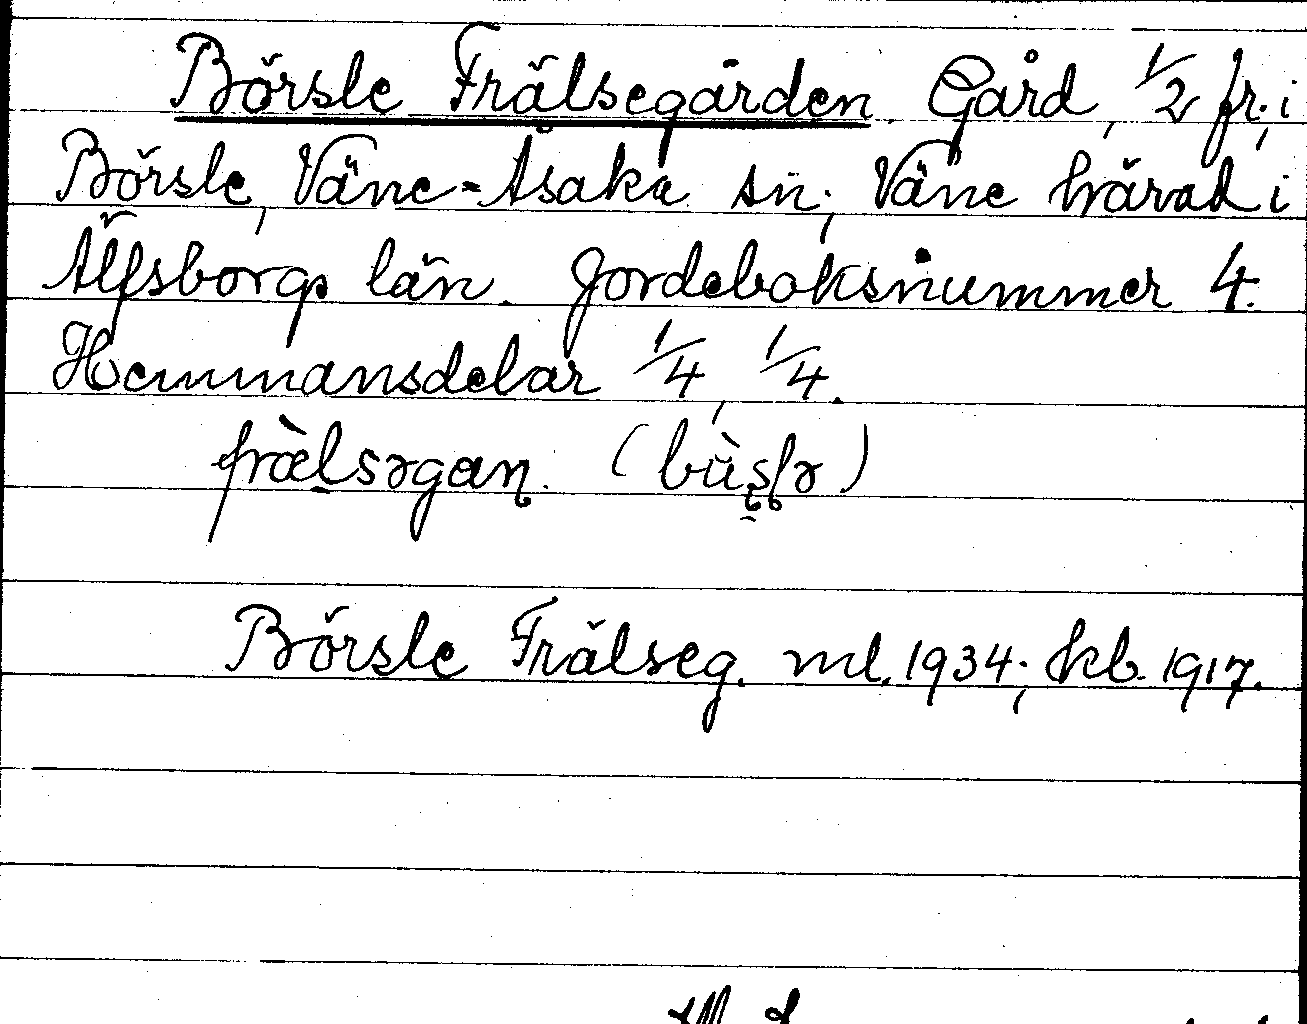 Börsle Frälsegården. Gård, 1/2 fr; i
Börsle, Väne-Åsaka sn; Väne härad i
Älfsborgs län. Jordeboksnummer 4.
Hemmansdelar 1/4, 1/4.
Börsle Frälseg. ml. 1934; kb. 1917.